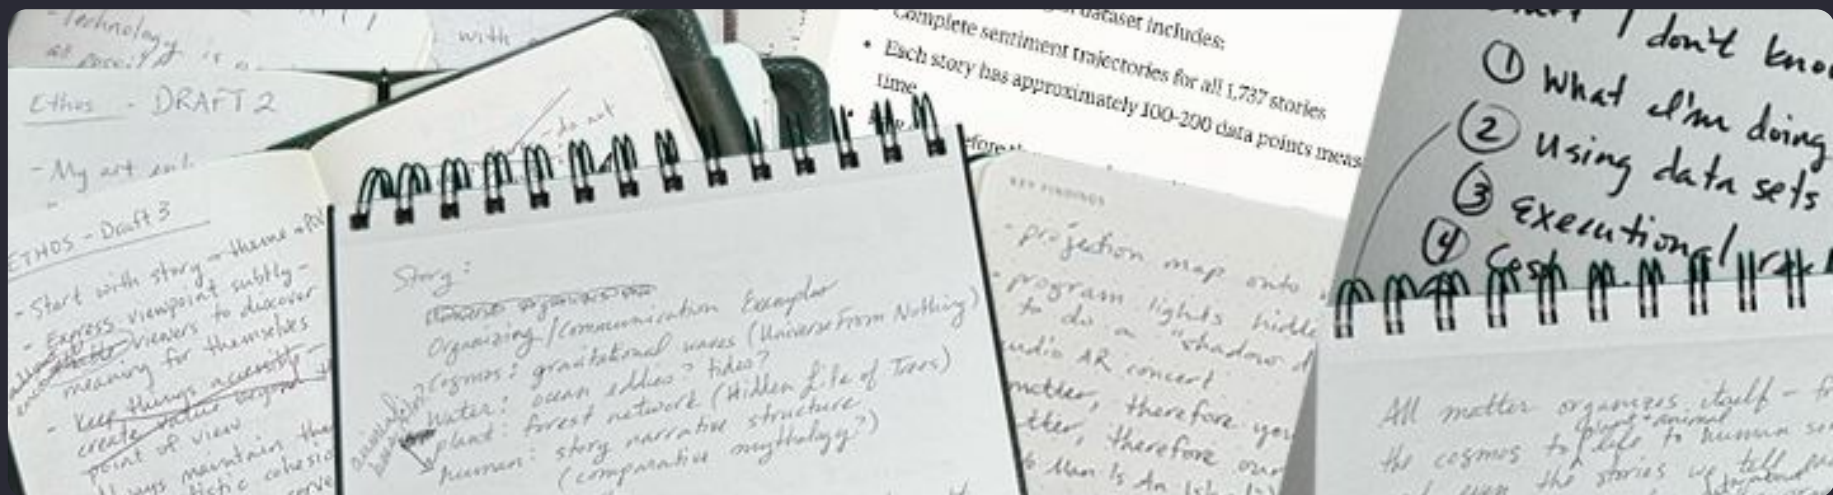 - Technology
is
with
Ethos - DRAFT 2
- My art
ETHOS - Draft 3
- Start with story → theme → POV
- Express viewpoint subtly -
viewers to discover
meaning for themselves
- Keep things accessible -
create value beyond
point of view
maintain
- do not
Story:
Organizing/Communication Exemplar
cosmos: gravitational waves (Universe From Nothing)
water: ocean eddies? tides?
plant: forest network (Hidden Life of Trees)
human: story narrative structure
(comparative mythology?)
dataset includes:
Complete sentiment trajectories for all 1,737 stories
• Each story has approximately 100-200 data points meas
time
KEY FINDINGS
- projection map onto
- program lights
to do a "shadow
AR concert
matter, therefore you
therefore our
Man Is An
I don't know
① What I'm doing
② Using data sets
③ Executional
④ Cost
All matter organizes itself -
plant + animal
the cosmos to life to human
even the stories we tell